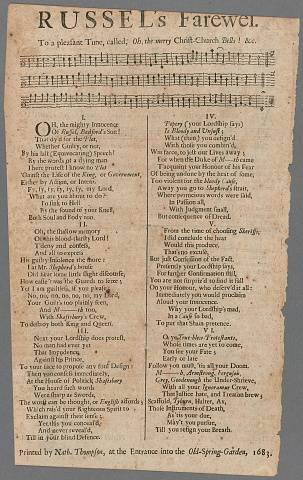 RUSSEL's Farewel.
To a pleasant Tune, called, Oh, the merry Christ-Church Bells! &c.
I.
OH, the mighty Innocence
Of Russel, Bedford's Son!
That dy'd for the Plot,
Whether Guilty, or not,
By his last (Equivocating) Speech!
By the words of a dying man
I here protest I know of no
'Gainst the Life of the King, or Government,
Either by Action, or Intent:
Fy, fy, fy, fy, fy, my Lord,
What are you about to do?
To sink to Hell
By the sound of your Knell,
Both Soul and Body too.
II.
Oh, the shallow memory
Of this blood-thirsty Lord!
T'deny and confess,
And all to express
His guilty Insolence the more:
At Mr. Shepherd's house
Did hear some little slight discourse,
How easie t'was the Guards to seize;
Yet I am guiltless, if you please:
No, no, no, no, no, no, my Lord,
Your Guilt's too plainly seen,
And M—th too,
With Shaftsbury's Crew,
To destroy both King and Queen.
III.
Next your Lordship does protest,
No man had ever yet
That Impudence,
Against his Prince,
To your face to propose any such Design:
Then you confess immediately,
At the House of Politick Shaftsbury
You heard such words
Were sharp as Swords,
The worst can be thought, or English affords;
Which rais'd your Righteous Spirit to
Exclaim against their sense;
Yet this you conceal'd
And never reveal'd,
Till in your blind Defence.
IV.
Popery (your Lordship says)
Is Bloody and Unjust;
What (then) you design'd
With those you combin'd,
Was farce, to jest our Lives away;
For when the Duke of M—th came
T'acquaint your Honour of his Fear
Of being undone by the heat of some,
Too violent for the bloody Cause,
Away you go to Shepherd's strait,
Where pernicious words were said,
In Passion all,
With Judgment small,
But consequence of Dread.
V.
From the time of choosing Sheriffs;
I did conclude the heat
Would this produce,
That's no excuse,
But just Confession of the Fact.
Pretend ye your Lordship says,
For further Confirmation still,
You are not surpriz'd to find it fall
On your Honour, who deserv'd it all:
Immediately you would proclaim
Aloud your Innocence.
Why your Lordship's mad,
In a Cause so bad,
To put that Sham pretence.
VI.
O you True-blew Protestants,
Whose times are yet to come,
You see your Fate;
Early or late
Follow you must, 'tis all your Doom.
M—th, Armstrong, Ferguson,
Grey, Goodenough the Under-Shrieve,
With all your Ignoramus Crew,
That Justice hate, and Treason brew;
Scaffold, Tyburn, Halter, Ax,
Those Instruments of Death,
As 'tis your due,
May't you pursue,
Till you resign your Breath.
Printed by Nath. Thompson, at the Entrance into the Old-Spring-Garden, 1683.